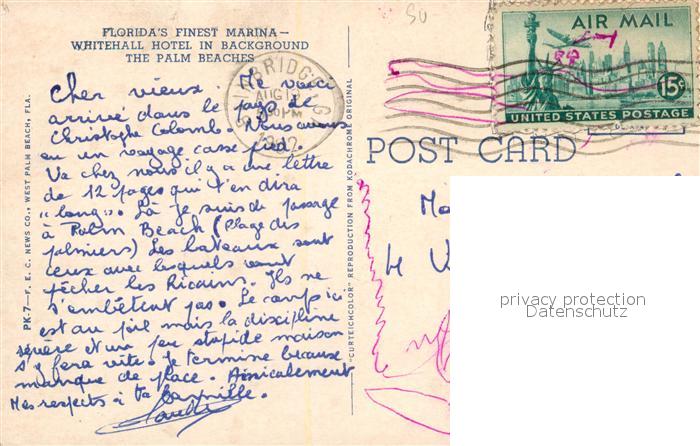 FLORIDA'S FINEST MARINA —
WHITEHALL HOTEL IN BACKGROUND
THE PALM BEACHES
Cher vieux. Me voici
arrivé dans le pays de
Christophe Colomb. Nous avons
eu un voyage casse pied.
Va chez nous il y a une lettre
de 12 pages qui t'en dira
"long". Là je suis de passage
à Palm Beach (Plage des
palmiers) Les bateaux sont
ceux avec lesquels vont
pêcher les Ricains. Ils ne
s'embêtent pas. Le camp ici
est au poil mais la discipline
sévère et un peu stupide maison
s'y fera vite. Je termine because
manque de place. Amicalement
Mes respects à ta famille.
PK-7—F. E. C. NEWS CO., WEST PALM BEACH, FLA.
"CURTEICHCOLOR" REPRODUCTION FROM KODACHROME ORIGINAL
AUG
PM
AIR MAIL
15¢
UNITED STATES POSTAGE
POST CARD
privacy protection
Datenschutz